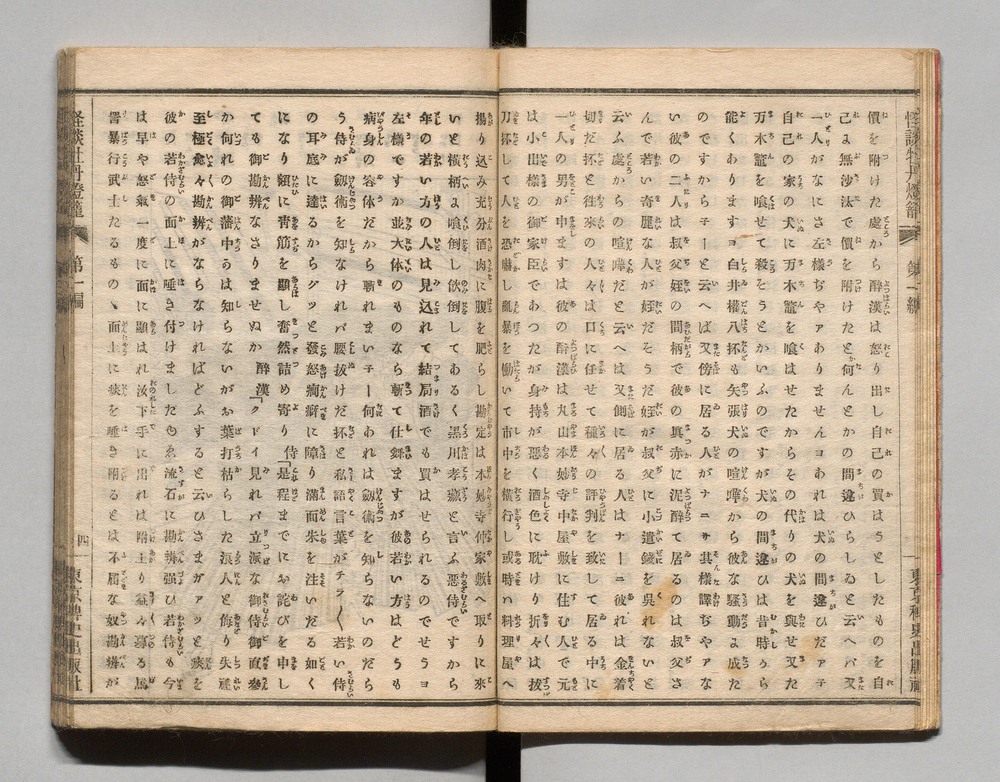 怪談牡丹燈籠 第一編 東京稗史出版社
價を附けた處から醉漢は怒り出し自己の買はうとしたものを自
己よ無沙汰で價を附けたと何んとかの間違ひらしゐと云へバ又
一人がなにさ左樣ぢやアありませんヨあれは犬の間違ひだアテ
自己の家の犬に万木鼈を喰はせたからその代りの犬を與せ又た
万木鼈を喰せて殺そうとかいふのですが犬の間違ひは昔時から
能くありますヨ白井權八抔も矢張犬の喧嘩から彼な騷動よ成た
のですからチーと云へば又傍に居る人がナニサ其樣譯ぢやアな
い彼の二人は叔父姪の間柄で彼の眞赤に泥醉て居るのは叔父さ
んで若い奇麗な人が姪だそうだ姪が叔父に小遣錢を呉れないと
云ふ處からの喧嘩だと云へは又側に居る人はナーニ彼れは金着
切だ抔と往來の人々は口に任せて種々の評判を致して居る中に
一人の男が申ますは彼の醉漢は丸山本妙寺中屋敷に住む人で元
は小出樣の御家臣であつたが身持が悪く酒色に耽けり折々は拔
刀抔して人を恐嚇し亂暴を働いて市中を橫行し或時ハ料理屋へ
揚り込み充分酒肉に腹を肥らし勘定は本妙寺仲家敷へ取りに來
いと橫柄よ喰倒し飮倒してあるく黑川孝藏と言ふ悪侍ですから
年の若い方の人は見込れて結局酒でも買はせられるのでせうヨ
左樣ですか並大体のものなら斬て仕舞ますが彼若い方はどうも
病身の容体だから斬れまいテー何あれは劔術を知らないのだら
う侍が劔術を知なけれバ腰抜けだ抔と私語言葉がチラ〱若い侍
の耳底に達るからグッと發怒癇癖に障り滿面朱を注いだる如く
になり額に靑筋を顯し奮然詰め寄り 侍「是程までにお詫びを申し
ても御勘辨なさりませぬか 醉漢「クドイ見れバ立派な御侍御直參
か何れの御藩中うは知らないがお葉打枯らした浪人と侮り失禮
至極愈々勘辨がならなければどふすると云ひさまガアッと痰を
彼の若侍の面上に唾き付けましたゆゑ流石に勘辨强ひ若侍も今
は早や怒氣一度に面に顯はれ汝下手に出れは附上り益々募る罵
詈暴行武士たるものゝ面上に痰を唾き附るとは不屆な奴勘辨が
怪談牡丹燈籠 第一編 四 東京稗史出版社